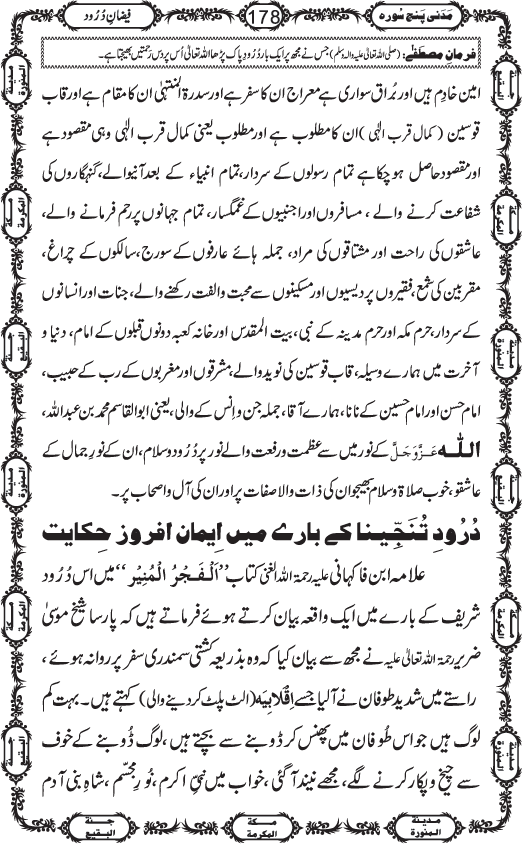 مَدَنی پنج سورہ
178
فیضانِ دُرُود
فرمانِ مصطَفٰے: (صلی اللہ تعالیٰ علیہ والہٖ وسلم) جس نے مجھ پر ایک بار دُرُودِ پاک پڑھا اللہ تعالیٰ اُس پر دس رَحمتیں بھیجتا ہے۔
امین خادِم ہیں اور بُراق سواری ہے معراج ان کا سفر ہے اور سدرۃ المنتہٰی ان کا مقام ہے اور قاب
قوسین (کمالِ قربِ الٰہی) ان کا مطلوب ہے اور مطلوب یعنی کمالِ قربِ الٰہی وہی مقصود ہے
اور مقصود حاصل ہو چکا ہے تمام رسولوں کے سردار، تمام انبیاء کے بعد آنیوالے، گنہگاروں کی
شفاعت کرنے والے ، مسافروں اور اجنبیوں کے غمگسار، تمام جہانوں پر رحم فرمانے والے،
عاشقوں کی راحت اور مشتاقوں کی مراد، جملہ ہائے عارفوں کے سورج، سالکوں کے چراغ،
مقربین کی شمع، فقیروں پردیسیوں اور مسکینوں سے محبت والفت رکھنے والے، جنات اور انسانوں
کے سردار، حرمِ مکہ اور حرمِ مدینہ کے نبی، بیت المقدس اور خانہ کعبہ دونوں قبلوں کے امام، دنیا و
آخرت میں ہمارے وسیلہ، قاب قوسین کی نوید والے، مشرقوں اور مغربوں کے رب کے حبیب،
امام حسن اور امام حسین کے نانا، ہمارے آقا، جملہ جن و انس کے والی، یعنی ابوالقاسم محمد بن عبداللہ،
اللہ عَزَّوَجَلَّ کے نور میں سے عظمت و رفعت والے نور پر دُرُود و سلام، ان کے نورِ جمال کے
عاشقو، خوب صلاۃ و سلام بھیجو ان کی ذات والا صفات پر اور ان کی آل و اصحاب پر۔
دُرُودِ تُنَجِّینا کے بارے میں اِیمان افروز حِکایت
علامہ ابن فاکہانی علیہ رحمۃ اللہ الغنی کتاب ”اَلْفَجْرُ الْمُنِیْر“ میں اس دُرُود
شریف کے بارے میں ایک واقعہ بیان کرتے ہوئے فرماتے ہیں کہ پارسا شیخ موسیٰ
ضریر رحمۃ اللہ تعالیٰ علیہ نے مجھ سے بیان کیا کہ وہ بذریعہ کشتی سمندری سفر پر روانہ ہوئے ،
راستے میں شدید طوفان نے آلیا جسے اِقْلَابِیَہ (الٹ پلٹ کر دینے والی) کہتے ہیں۔ بہت کم
لوگ ہیں جو اس طُوفان میں پھنس کر ڈوبنے سے بچتے ہیں، لوگ ڈوبنے کے خوف
سے چیخ و پکار کرنے لگے، مجھے نیند آگئی ، خواب میں نبیِّ اکرم، نُورِ مجسَّم، شاہِ بنی آدم
مدینۃ المنورۃ
مکۃ المکرمۃ
جنۃ البقیع
مدینۃ المنورۃ
مکۃ المکرمۃ
جنۃ البقیع
جنۃ البقیع
مکۃ المکرمۃ
مدینۃ المنورۃ
جنۃ البقیع
مکۃ المکرمۃ
مدینۃ المنورۃ
مدینۃ المنورۃ
مکۃ المکرمۃ
جنۃ البقیع